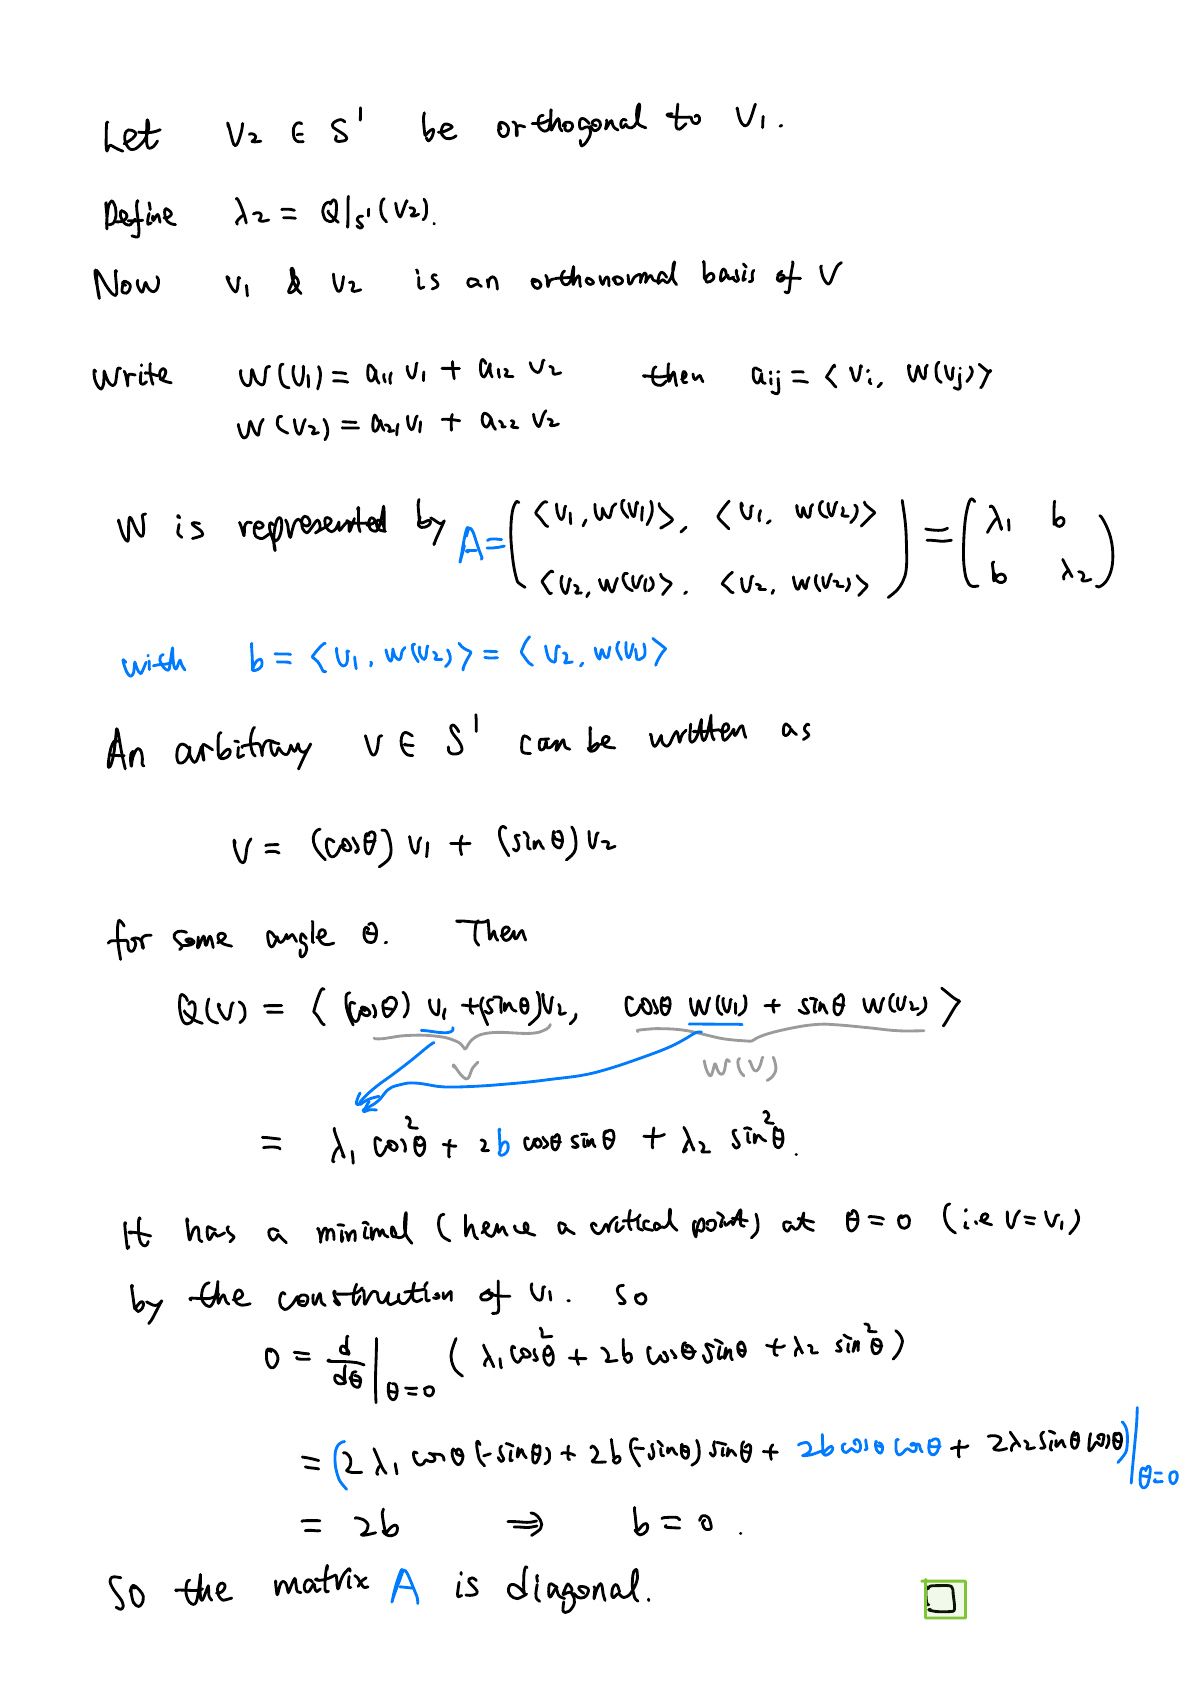 Let v₂ ∈ S¹ be orthogonal to v₁.
Define λ₂ = Q|ₛ₁(v₂).
Now v₁ & v₂ is an orthonormal basis of V
Write W(v₁) = a₁₁ v₁ + a₁₂ v₂ then aᵢⱼ = ⟨vᵢ, W(vⱼ)⟩
W(v₂) = a₂₁ v₁ + a₂₂ v₂
W is represented by A = ( ⟨v₁, W(v₁)⟩, ⟨v₁, W(v₂)⟩ ) = ( λ₁ b )
( ⟨v₂, W(v₁)⟩. ⟨v₂, W(v₂)⟩ ) ( b λ₂ )
with b = ⟨v₁, W(v₂)⟩ = ⟨v₂, W(v₁)⟩
An arbitrary v ∈ S¹ can be written as
v = (cosθ) v₁ + (sinθ) v₂
for some angle θ. Then
Q(v) = ⟨ (cosθ) v₁ + (sinθ) v₂, cosθ W(v₁) + sinθ W(v₂) ⟩
v W(v)
= λ₁ cos²θ + 2b cosθ sinθ + λ₂ sin²θ.
It has a minimal (hence a critical point) at θ = 0 (i.e v = v₁)
by the construction of v₁. So
0 = d/dθ |θ=0 ( λ₁ cos²θ + 2b cosθ sinθ + λ₂ sin²θ )
= (2 λ₁ cosθ (-sinθ) + 2b (-sinθ) sinθ + 2b cosθ cosθ + 2λ₂ sinθ cosθ)|θ=0
= 2b ⇒ b = 0.
So the matrix A is diagonal. □